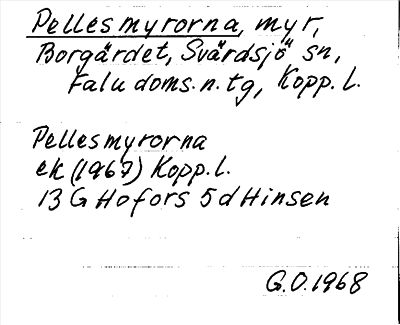 Pellesmyrorna, myr,
Borgärdet, Svärdsjö sn,
Falu doms.n.tg, Kopp.l.
Pellesmyrorna
ek (1967) Kopp.l.
13 G Hofors 5d Hinsen
G.O.1968